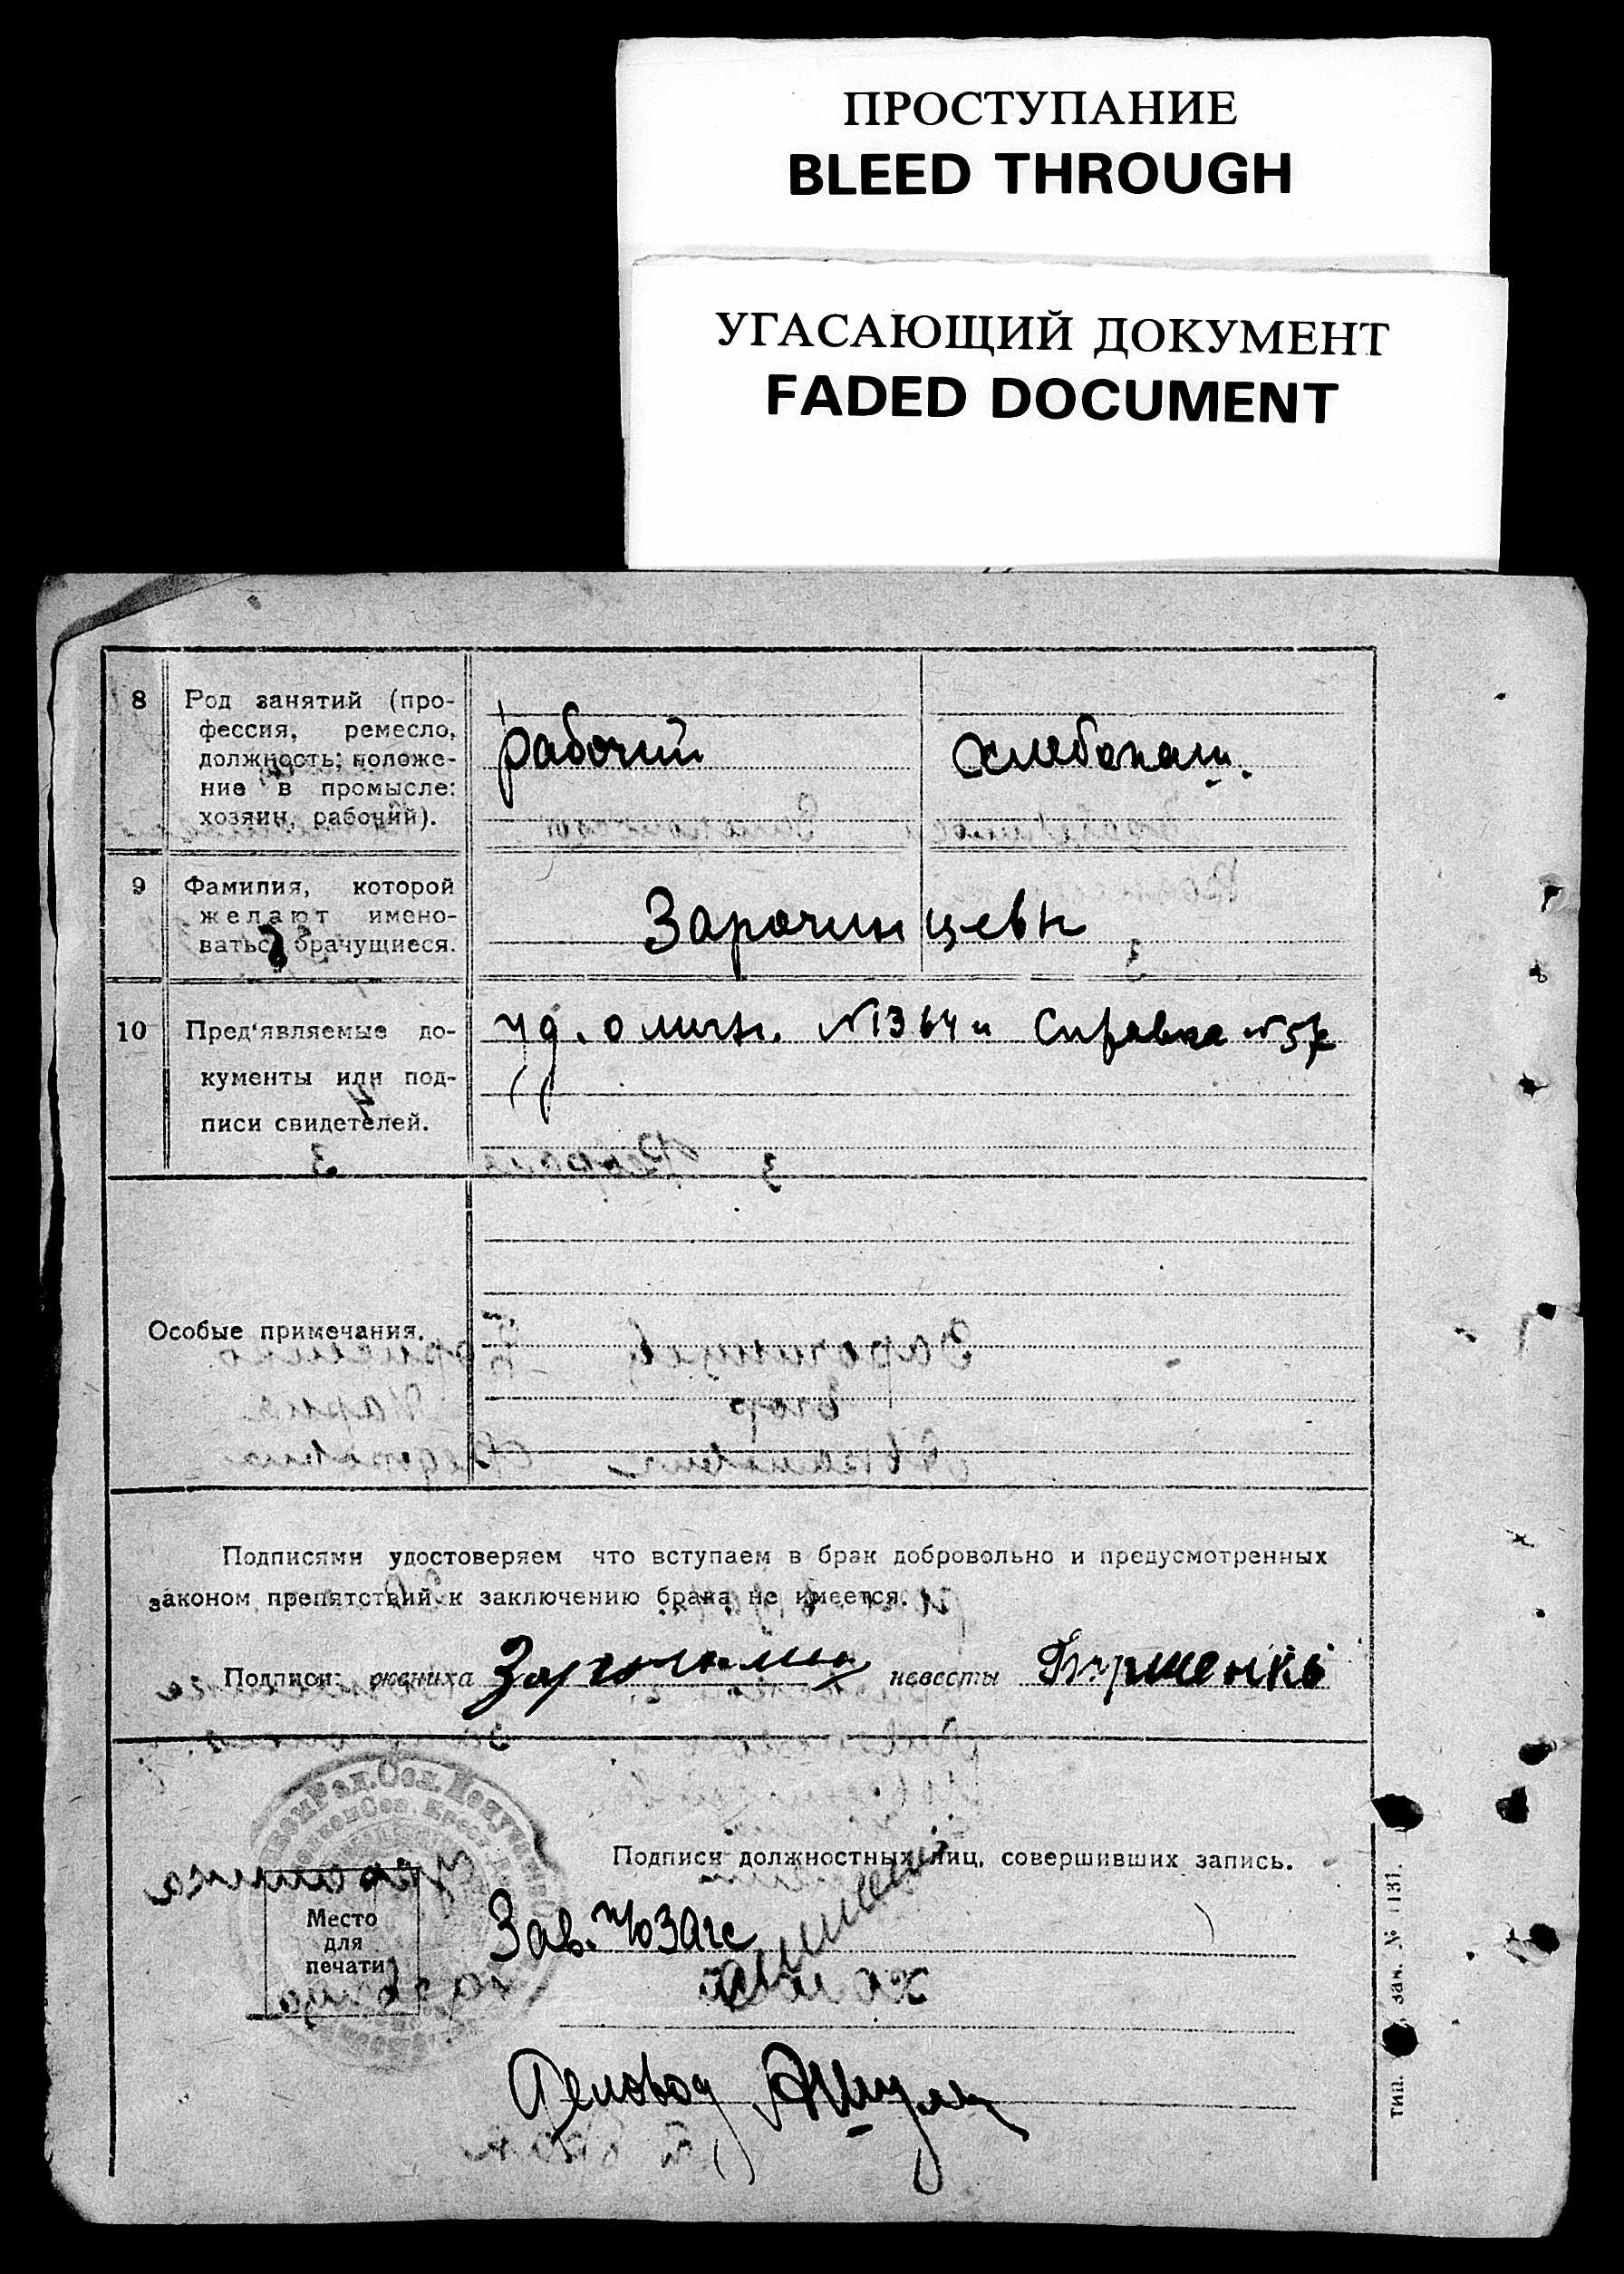 ПРОСТУПАНИЕ
BLEED THROUGH
УГАСАЮЩИЙ ДОКУМЕНТ
FADED DOCUMENT
8 Род занятий (про-
фессия, ремесло,
должность; положе-
ние в промысле:
хозяин, рабочий).
рабочий хлебопаш.
9 Фамилия, которой
желают имено-
ваться брачущиеся.
Зарочинцевы
10 Пред'являемые до-
кументы или под-
писи свидетелей.
уд. о личн. № 1364 и Справка № 57
Особые примечания.
Подписями удостоверяем что вступаем в брак добровольно и предусмотренных
законом препятствий к заключению брака не имеется.
Подписи: жениха невесты
Подписи должностных лиц, совершивших запись.
Место
для
печати
Зав. п/о ЗАГС
Деловод
тип. зак. № 1131.